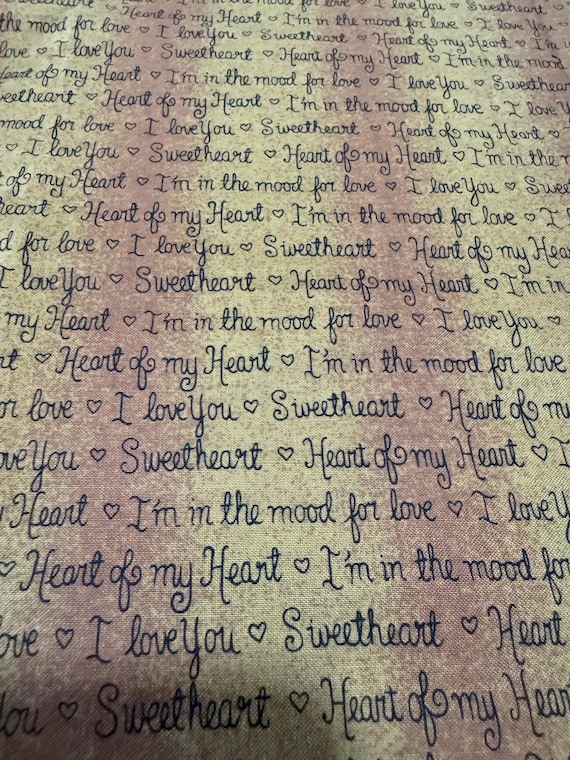 Sweetheart ♡ I'm in the mood for love ♡ I love You ♡ Sweetheart
the mood for love ♡ Heart of my Heart ♡ I'm in the mood for love ♡ I love You ♡ Sweetheart
♡ I love You ♡ Sweetheart ♡ Heart of my Heart ♡ I'm in the mood for love ♡ I love You
love ♡ I love You ♡ Sweetheart ♡ Heart of my Heart ♡ I'm
Heart of my Heart ♡ I'm in the mood for love ♡ I love You ♡ Sweetheart
♡ Heart of my Heart ♡ I'm in the mood for love ♡ I love
mood for love ♡ I love You ♡ Sweetheart ♡ Heart of my Heart ♡
♡ I love You ♡ Sweetheart ♡ Heart of my Heart ♡ I'm in the
of my Heart ♡ I'm in the mood for love ♡ I love You ♡ Sweet
heart ♡ Heart of my Heart ♡ I'm in the mood for love ♡ I
d for love ♡ I love You ♡ Sweetheart ♡ Heart of my Hea
I love You ♡ Sweetheart ♡ Heart of my Heart ♡ I'm in
my Heart ♡ I'm in the mood for love ♡ I love You ♡
rt ♡ Heart of my Heart ♡ I'm in the mood for love
or love ♡ I love You ♡ Sweetheart ♡ Heart of m
ove You ♡ Sweetheart ♡ Heart of my Heart ♡ I
Heart ♡ I'm in the mood for love ♡ I love Y
♡ Heart of my Heart ♡ I'm in the mood for
ove ♡ I love You ♡ Sweetheart ♡ Heart
You ♡ Sweetheart ♡ Heart of my Heart